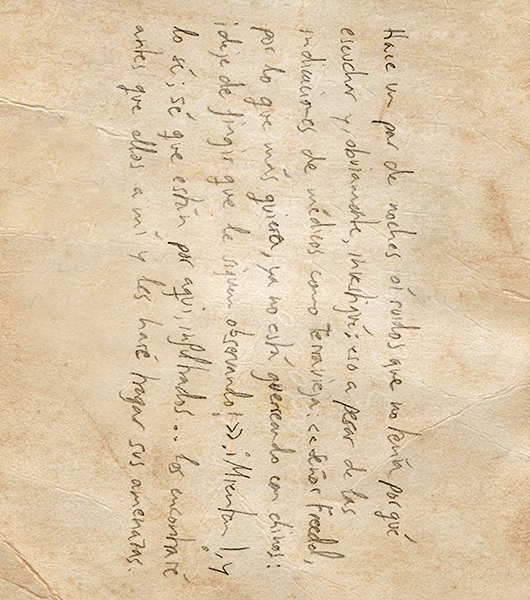 Hace un par de noches oí ruidos que no tenía por qué
escuchar y, obviamente, investigué; eso a pesar de las
indicaciones de médicos como Terravieja: <<Señor Freedel,
por lo que más quiera, ya no está guerreando con chinos:
¡deje de fingir que le siguen observando!>>. ¡Mienten!, y
lo sé; sé que están por aquí, infiltrados... los encontraré
antes que ellos a mí y les haré tragar sus amenazas.